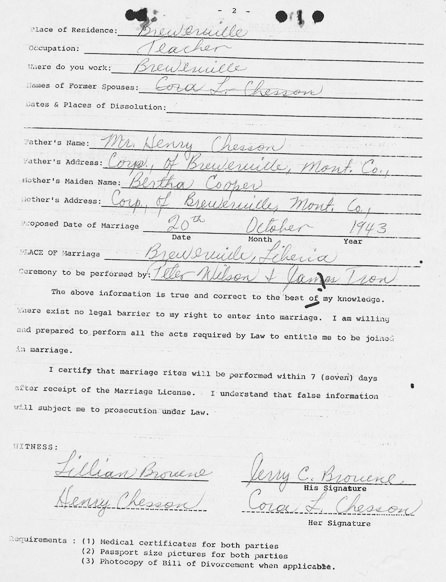 - 2 -
Place of Residence: Brewerville
Occupation: Teacher
Where do you work: Brewerville
Names of Former Spouses: Cora L. Chesson
Dates & Places of Dissolution:
Father's Name: Mr. Henry Chesson
Father's Address: Corp. of Brewerville, Mont. Co.,
Mother's Maiden Name: Bertha Cooper
Mother's Address: Corp. of Brewerville, Mont. Co.,
Proposed Date of Marriage 20th October 1943
Date Month Year
PLACE OF Marriage Brewerville, Liberia
Ceremony to be performed by: Peter Wilson & James Tron
The above information is true and correct to the best of my knowledge.
There exist no legal barrier to my right to enter into marriage. I am willing
and prepared to perform all the acts required by Law to entitle me to be joined
in marriage.
I certify that marriage rites will be performed within 7 (seven) days
after receipt of the Marriage License. I understand that false information
will subject me to prosecution under Law.
WITNESS:
Lillian Browne Jerry C. Browne
His Signature
Henry Chesson Cora L. Chesson
Her Signature
Requirements : (1) Medical certificates for both parties
(2) Passport size pictures for both parties
(3) Photocopy of Bill of Divorcement when applicable.